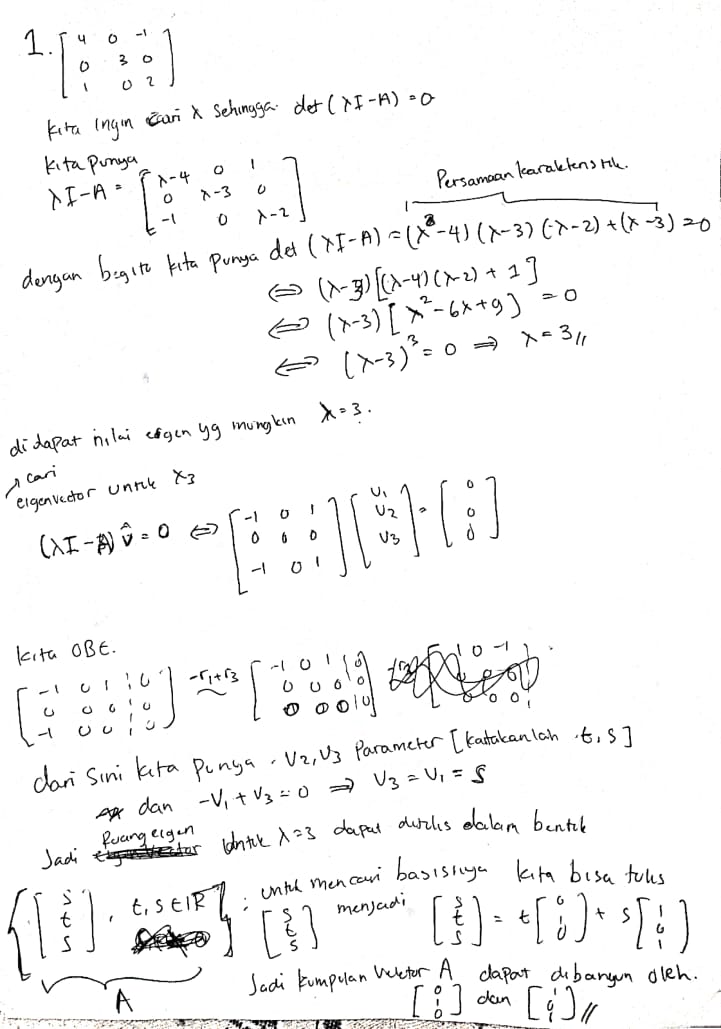 1. [4 0 -1
0 3 0
1 0 2]
kita ingin cari λ sehingga det(λI-A) = 0
kita punya
λI-A = [λ-4 0 1
0 λ-3 0
-1 0 λ-2]
Persamaan karakteristik.
dengan begitu kita punya det(λI-A) = (λ-4)(λ-3)(λ-2)+(λ-3) = 0
⇔ (λ-3)[(λ-4)(λ-2) + 1]
⇔ (λ-3)[λ²-6λ+9] = 0
⇔ (λ-3)³ = 0 ⇒ λ = 3 //
didapat nilai eigen yg mungkin λ = 3.
cari
eigenvector untuk λ3
(λI-A) v̂ = 0 ⇔ [-1 0 1
0 0 0
-1 0 1] [v₁
v₂
v₃] = [0
0
0]
kita OBE.
[-1 0 1 | 0
0 0 0 | 0
-1 0 0 | 0] -r₁+r₃ ~ [-1 0 1 | 0
0 0 0 | 0
0 0 0 | 0]
dari sini kita punya, v₂, v₃ Parameter [katakanlah t, s]
dan -v₁ + v₃ = 0 ⇒ v₃ = v₁ = s
Jadi Ruang eigen untuk λ=3 dapat ditulis dalam bentuk
{[s
t
s], t, s ∈ ℝ} ; untuk mencari basisnya kita bisa tulis
[s
t
s] menjadi [s
t
s] = t[0
1
0] + s[1
0
1]
A
Jadi kumpulan vektor A dapat dibangun oleh.
[0
1
0] dan [1
0
1] //